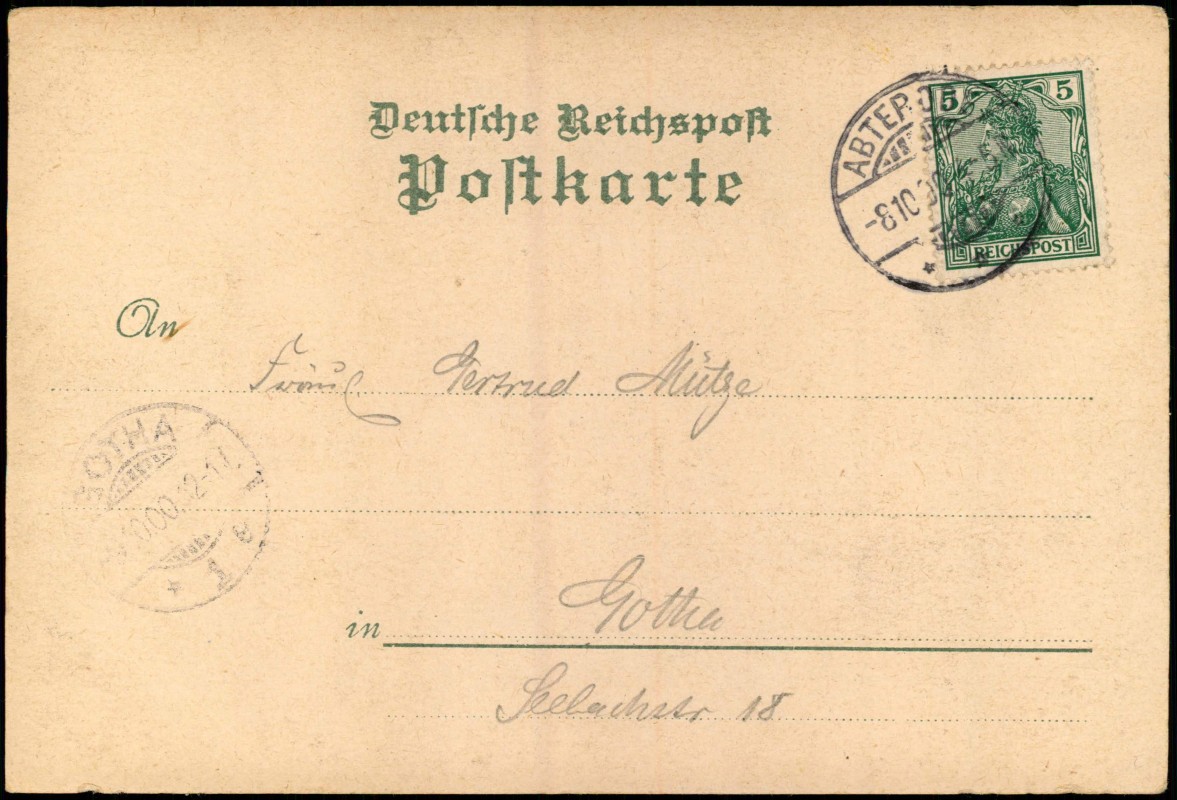 Deutsche Reichspost
Postkarte
ABTERODE
-8 10 00
5 5
REICHSPOST
An
Fräul Gertrud Mütze
GOTHA
10.00.12-1
1 a
in Gotha
Seebachstr 18